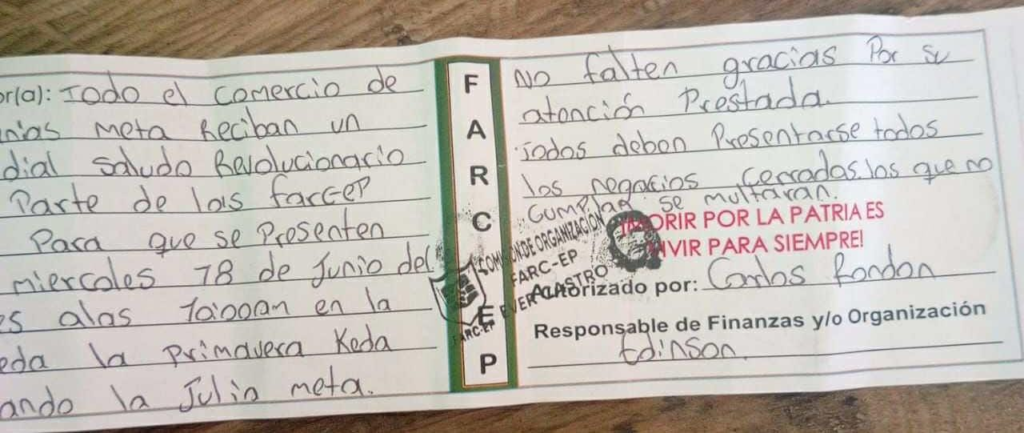 or(a): Todo el comercio de
nias Meta Reciban un
dial saludo Revolucionario
Parte de las farcEP
Para que se Presenten
miercoles 18 de Junio del
es alas 10:00am en la
eda la primavera Keda
ando la Julia meta.
F
A
R
C
E
P
No falten gracias Por su
atención Prestada.
Todos deben Presentarse todos
los negocios cerrados los que no
Cumplan se multaran.
MORIR POR LA PATRIA ES
VIVIR PARA SIEMPRE!
COMISION DE ORGANIZACIÓN
FARC-EP
EVER CASTRO
FARC-EP
Autorizado por: Carlos Rondon
Responsable de Finanzas y/o Organización
Edinson.